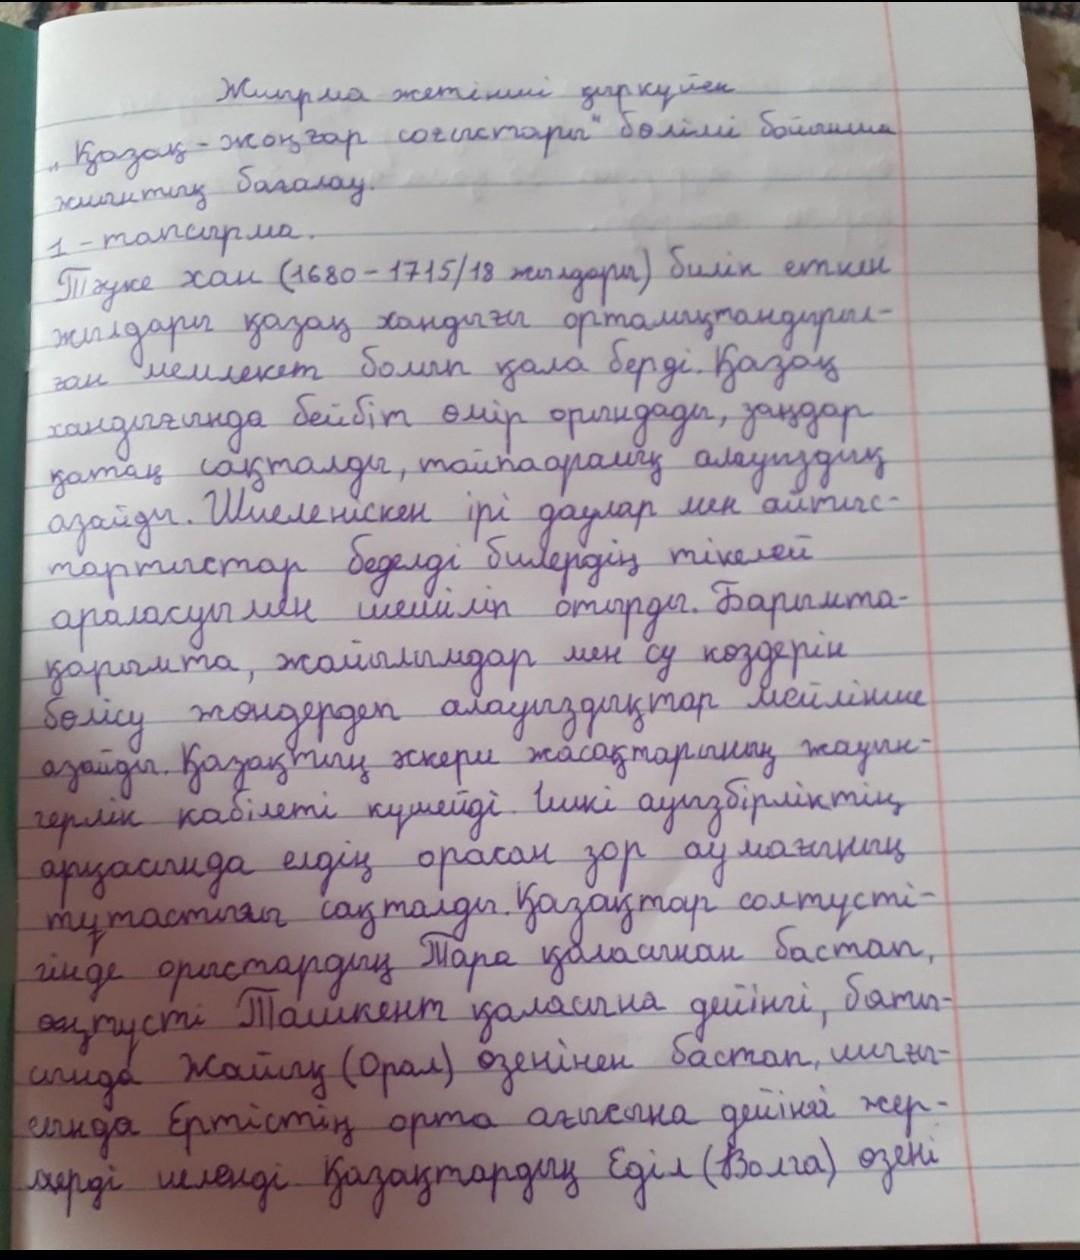 Жиырма жетінші қыркүйек
„Қазақ-жоңғар соғыстары" бөлімі бойынша
жиынтық бағалау.
1-тапсырма.
Тәуке хан (1680-1715/18 жылдары) билік еткен
жылдары қазақ хандығы орталықтандырыл-
ған мемлекет болып қала берді. Қазақ
хандығында бейбіт өмір орындады, заңдар
қатаң сақталды, тайпааралық алауыздық
азайды. Шиеленіскен ірі даулар мен айтыс-
тартыстар беделді билердің тікелей
араласуымен шешіліп отырды. Барымта-
қарымта, жайылымдар мен су көздерін
бөлісу жөндердеп алауыздықтар мейлінше
азайды. Қазақтың әскери жасақтарының жауын-
герлік кабілеті күшейді. Ішкі ауызбірліктің
арқасында елдің орасан зор аумағының
тұтастығы сақталды. Қазақтар солтүсті-
гінде орыстардың Тара қаласынан бастап,
оңтүсті Ташкент қаласына дейінгі, баты-
сында Жайық (Орал) өзенінен бастап, шығы-
сында Ертістің орта ағысына дейінгі жер-
лерді иеленді Қазақтардың Еділ (Волга) өзені